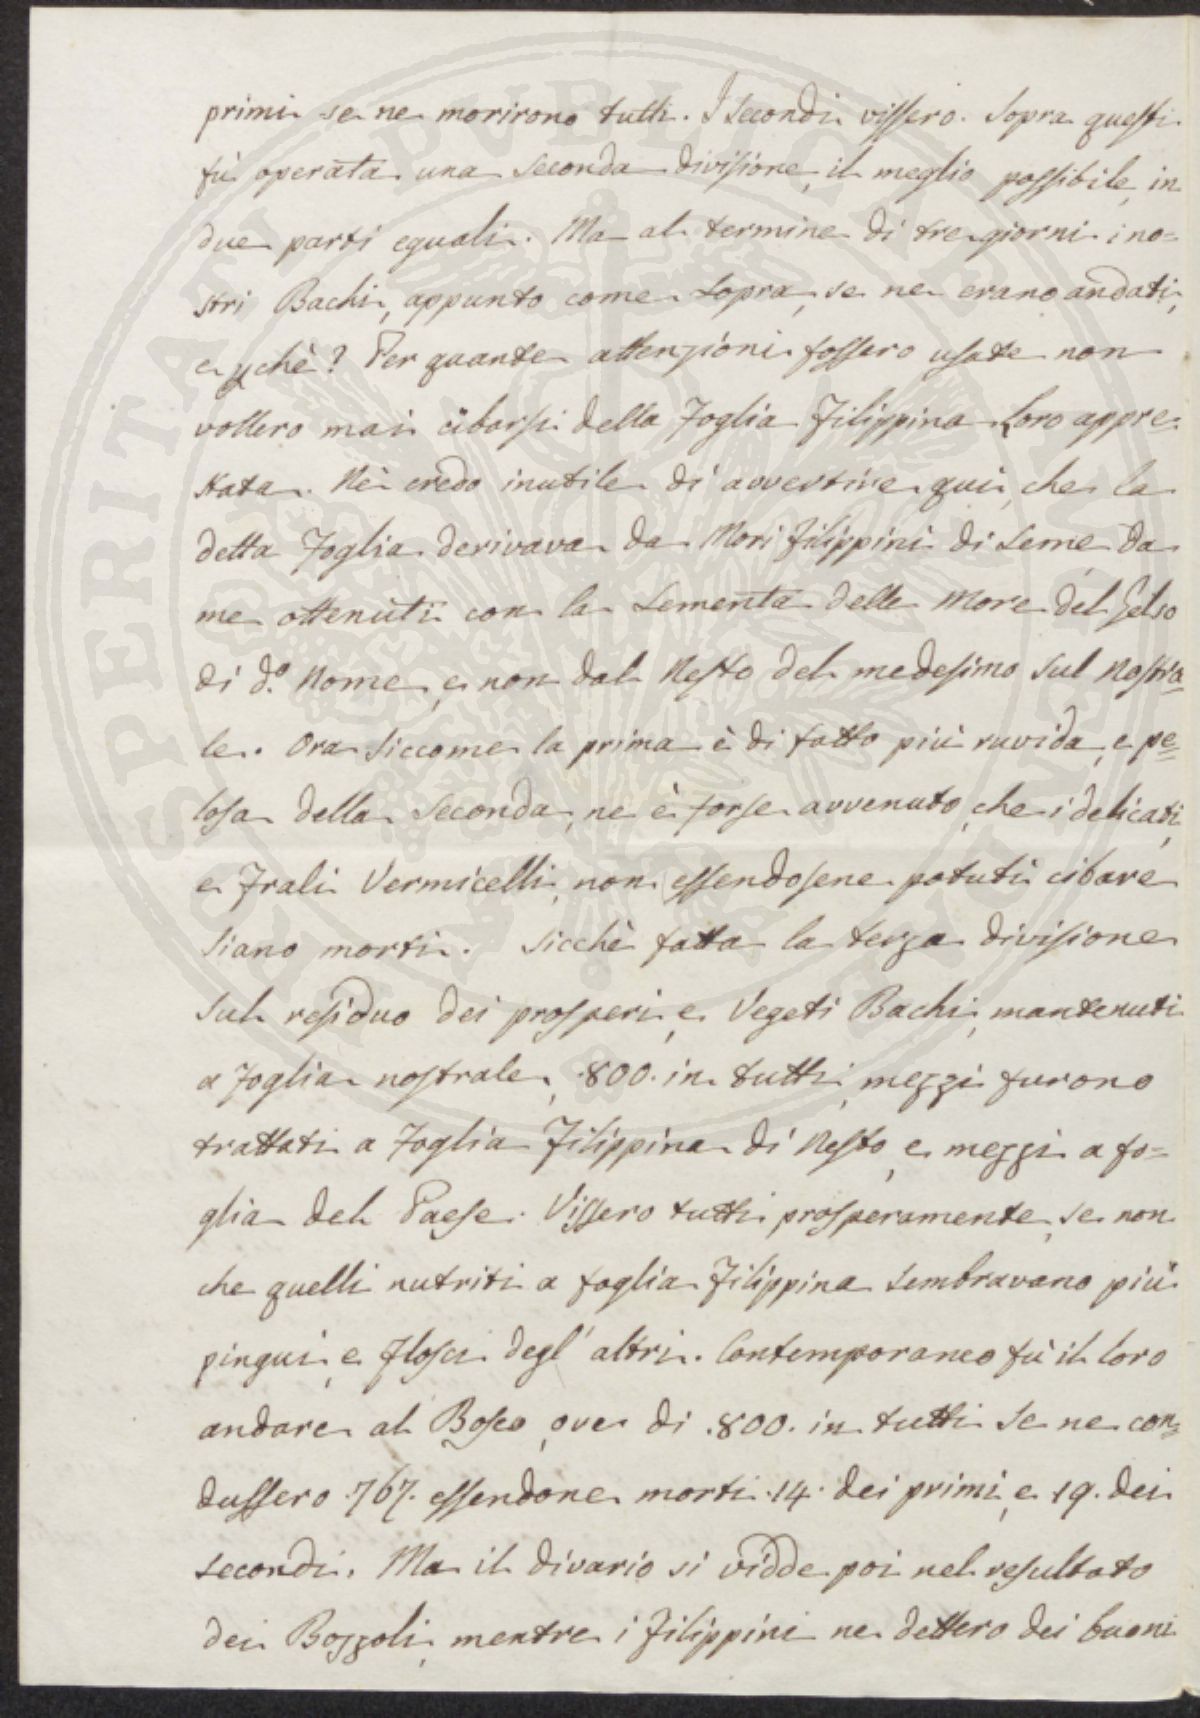 primi se ne morirono tutti. I secondi vissero. Sopra questi
fù operata una seconda divisione, il meglio possibile, in
due parti eguali. Ma al termine di tre giorni i no=
stri Bachi, appunto come sopra, se ne erano andati,
e pchè? Per quante attenzioni fossero usate non
vollero mai cibarsi della Foglia Filippina Loro appre=
stata. Nè credo inutile di avvertire qui, che la
detta Foglia derivava da Mori Filippini di Seme da
me ottenuti con la Sementa delle More del Gelso
di d.º Nome, e non dal Nesto del medesimo sul Nostra=
le. Ora siccome la prima è di fatto più ruvida, e pe=
losa della seconda, ne è forse avvenuto, che i delicati,
e Frali Vermicelli, non essendosene potuti cibare
siano morti. Sicchè fatta la terza divisione
sul residuo dei prosperi, e Vegeti Bachi, mantenuti
a Foglia nostrale, .800. in tutti, mezzi furono
trattati a Foglia Filippina di Nesto, e mezzi a fo=
glia del Paese. Vissero tutti prosperamente, se non
che quelli nutriti a foglia Filippina sembravano più
pingui, e Flosci degl' altri. Contemporaneo fù il loro
andare al Bosco, ove di .800. in tutti se ne con=
dussero .767. essendone morti .14. dei primi, e 19. dei
secondi. Ma il divario si vidde poi nel resultato
dei Bozzoli, mentre i Filippini ne dettero dei buoni